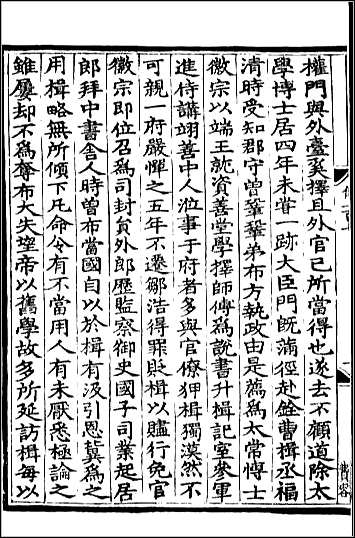 權門與外臺奚擇且外官已所當得也遂去不顧道除太
學博士居四年未嘗一跡大臣門既滿徑赴銓曹楫丞福
清時受知郡守曾鞏鞏弟布方執政由是薦爲太常愽士
徽宗以端王就資善堂學擇師傅爲說書升楫記室參軍
進侍講翊善中人涖事于府者多與官僚狎楫獨漠然不
可親一府嚴憚之五年不遷鄒浩得罪貶楫以贐行免官
徽宗即位召爲司封貟外郎歷監察御史國子司業起居
郎拜中書舍人時曾布當國自以於楫有汲引恩冀爲之
用楫略無所傾下凡命令有不當用人有未厭悉極論之
雖屢却不爲奪布大失望帝以舊學故多所延訪楫每以